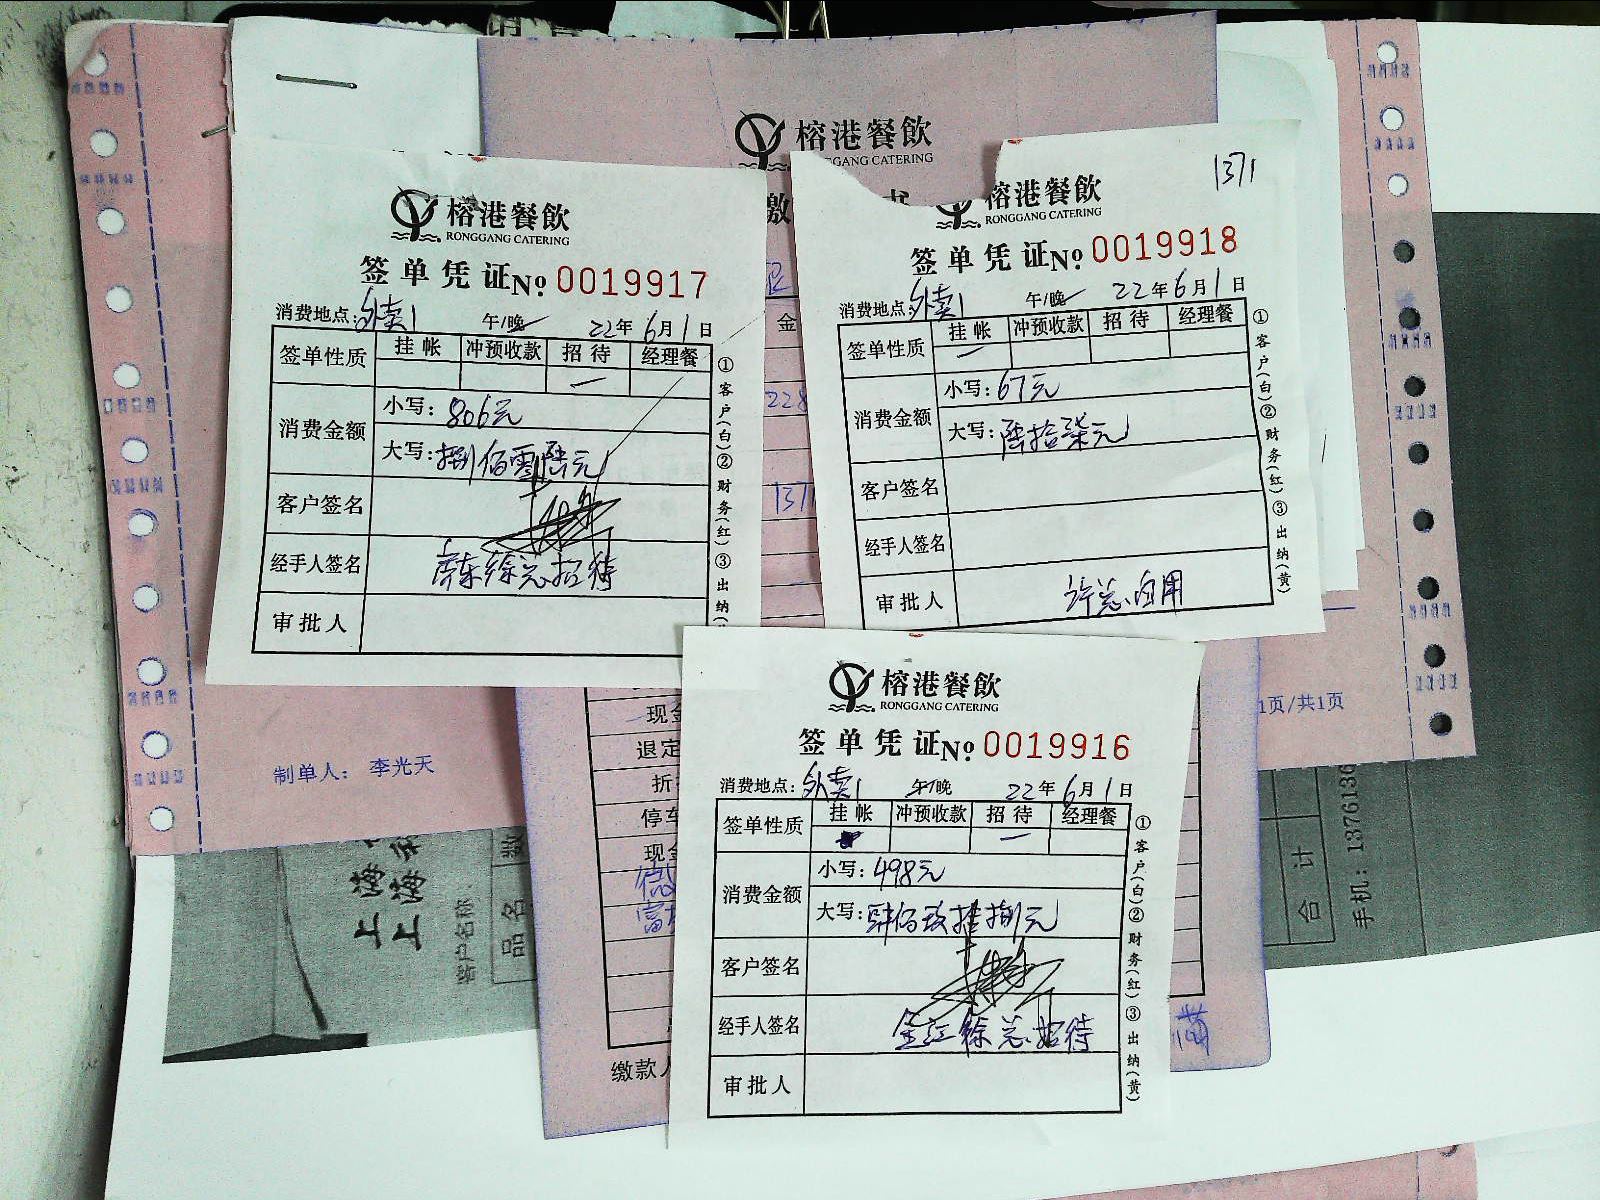 榕港餐飲
GANG CATERING
缴
榕港餐飲
RONGGANG CATERING
签单凭证 №: 0019917
消费地点:外卖1 午/晚 22年6月1日
签单性质 挂帐 冲预收款 招待 经理餐
消费金额 小写:806元
大写:捌佰零陆元
客户签名
经手人签名 徐总招待
审批人
①客户(白)②财务(红)③出纳(
1371
榕港餐飲
RONGGANG CATERING
签单凭证 №: 0019918
消费地点:外卖1 午/晚 22年6月1日
签单性质 挂帐 冲预收款 招待 经理餐
消费金额 小写:67元
大写:陆拾柒元
客户签名
经手人签名
审批人 许总自用
①客户(白)②财务(红)③出纳(黄)
金
228
137
榕港餐飲
RONGGANG CATERING
签单凭证 №: 0019916
消费地点:外卖1 午/晚 22年6月1日
签单性质 挂帐 冲预收款 招待 经理餐
消费金额 小写:498元
大写:肆佰玖拾捌元
客户签名
经手人签名 金江徐总招待
审批人
①客户(白)②财务(红)③出纳(黄)
现金
退定
折
停车
现金
缴款人
制单人: 李光天
1页/共1页
上海
上海
客户名称:
品名
数
合计
手机: 1376136